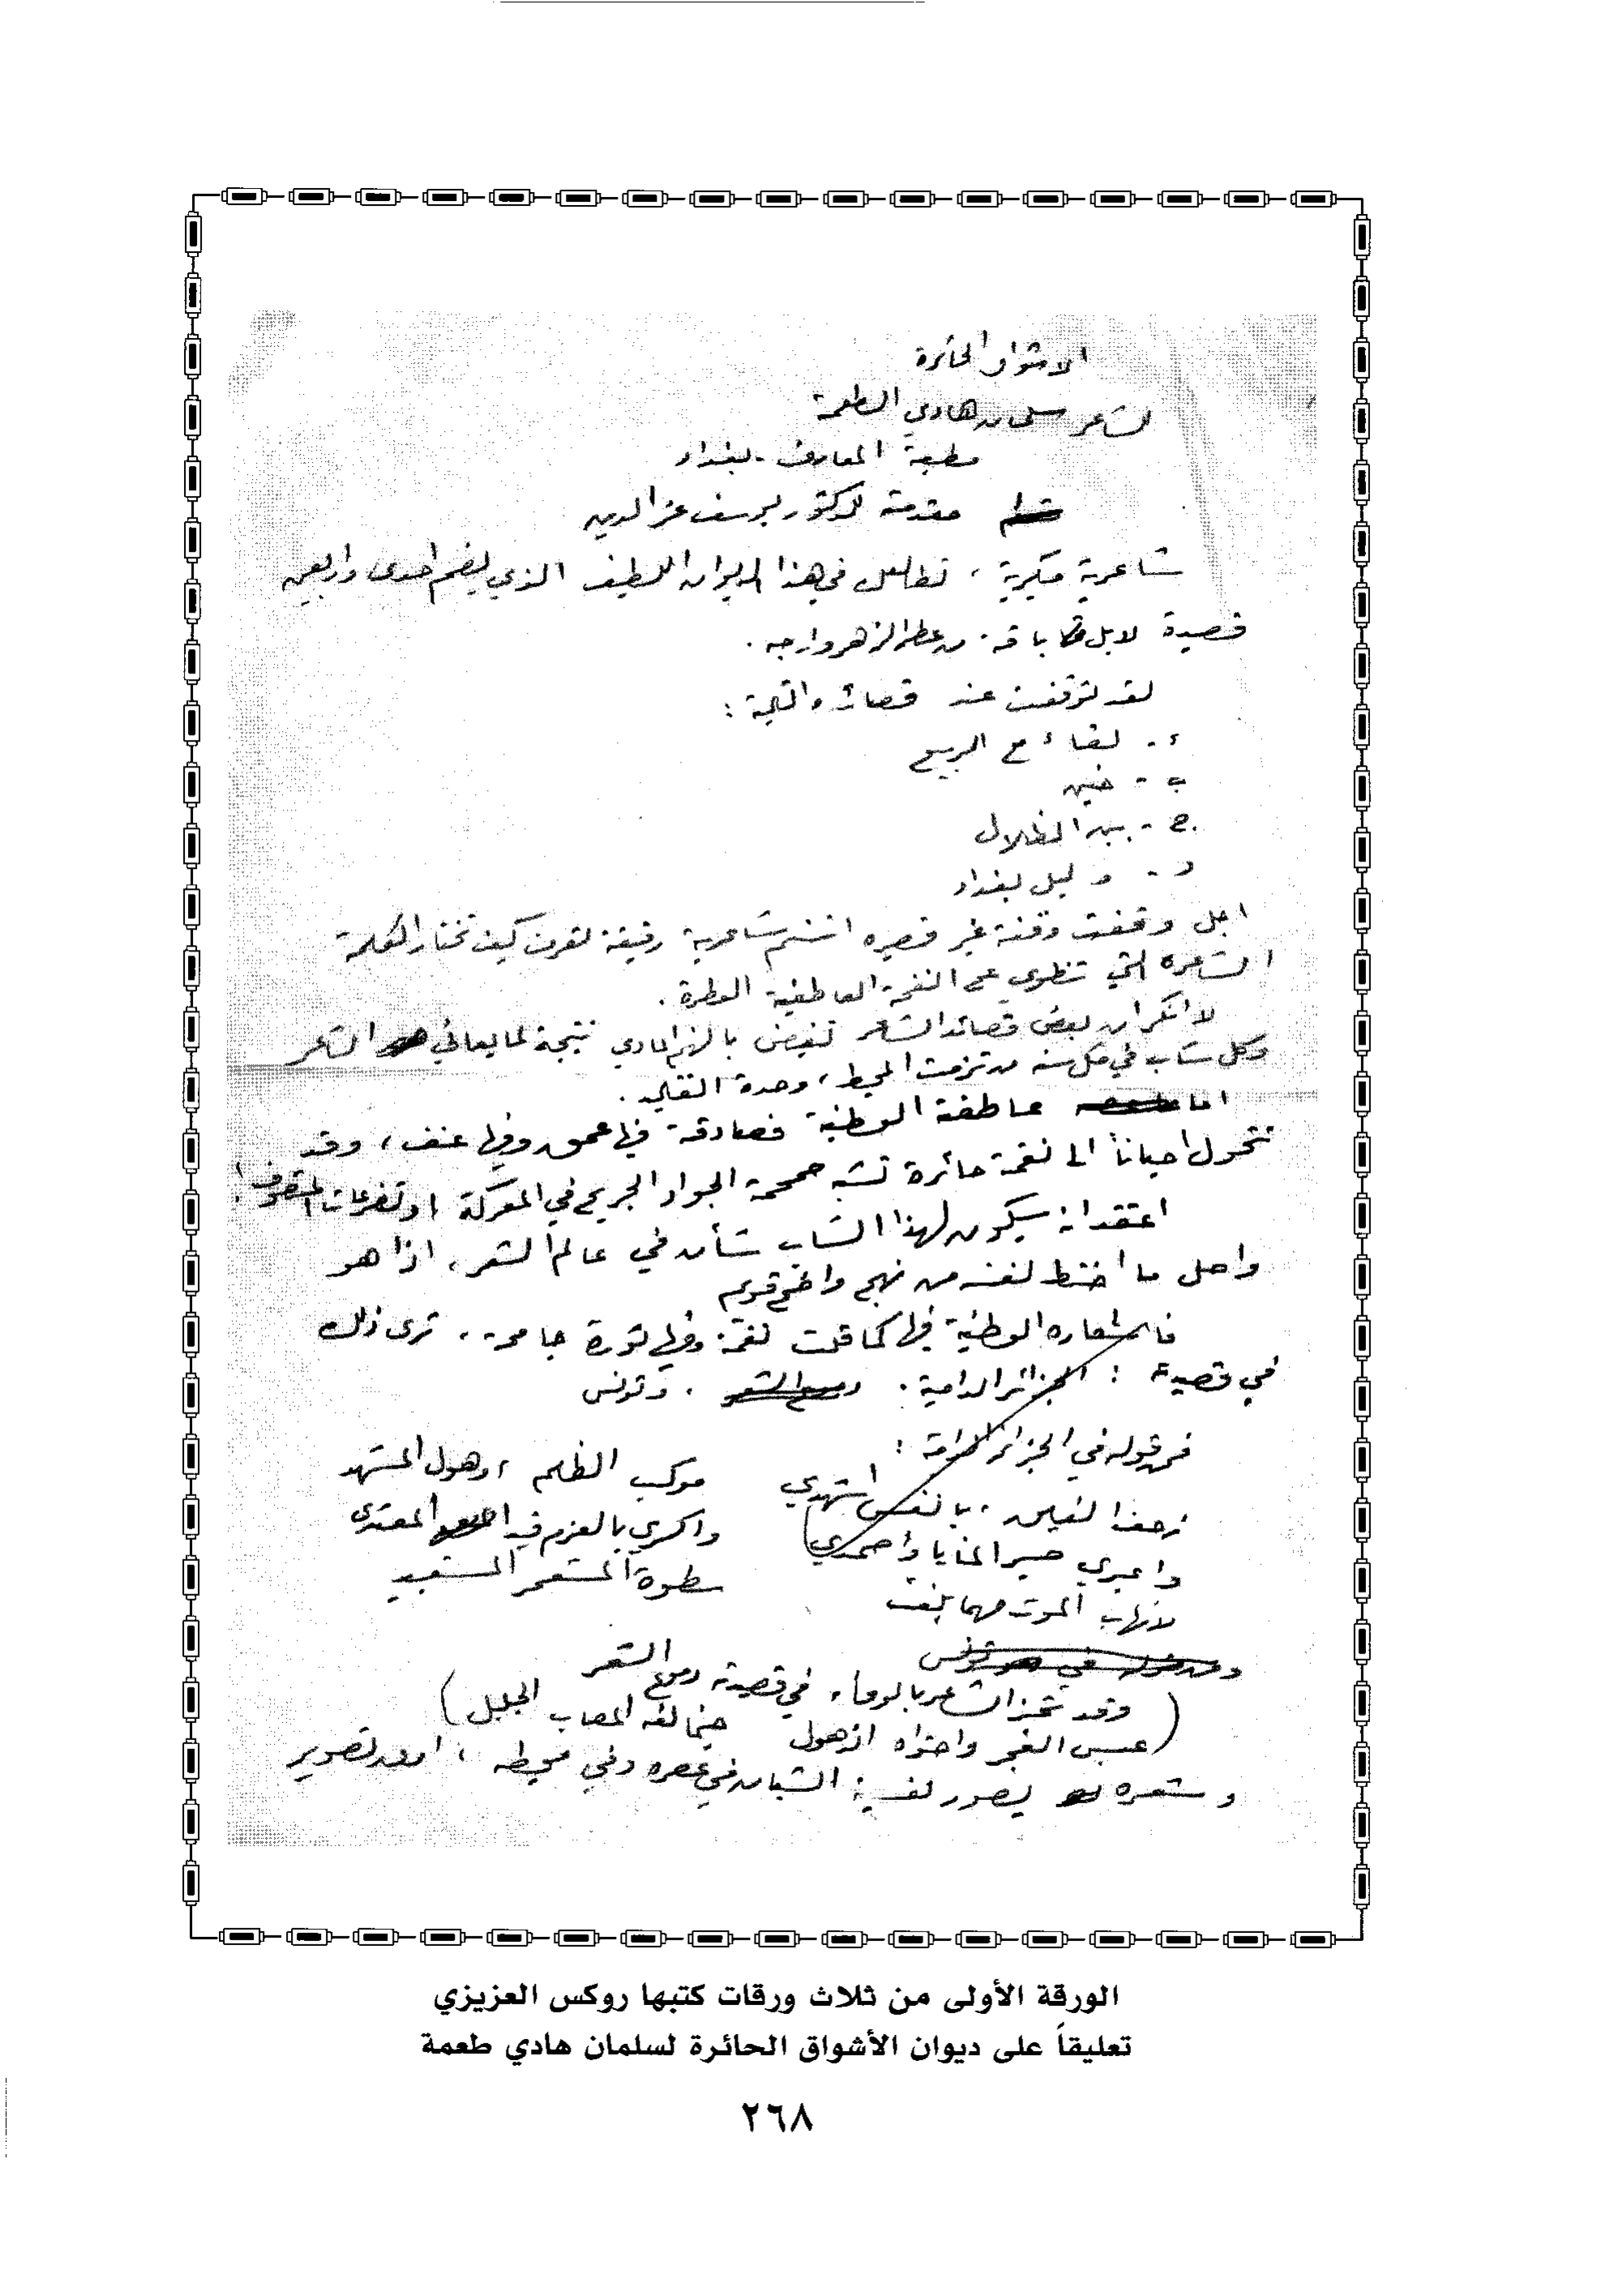 الاشواق الحائرة
للشاعر سلمان هادي الطعمة
مطبعة المعارف - بغداد
مقدمة للدكتور يوسف عز الدين
شاعرية مبكرة ، تطل في هذا الديوان اللطيف الذي يضم احدى واربعين
قصيدة لا بل باقة من عطر الزهر وارجه .
لقد توقفت عند قصائده التالية :
ء - لقاء مع الربيع
ب - حنين
ج - بين الظلال
د - ليل بغداد
اجل وقفت وقفة غير قصيرة شاعرية رقيقة تعرف كيف تختار الكلمة
الشاعرة التي تنطوي على النغمة العاطفية العطرة .
لا انكر ان بعض قصائد الشاعر تفيض المادي نتيجة لما يعاني الشاعر
وكل شاب في مثل سنه من تزمت المحيط ، وحدة التقاليد .
اما عاطفته الوطنية فصادقة فيها عمق وفيها عنف ، وقد
تتحول احياناً الى نغمة حائرة تشبه حمحمة الجواد الجريح في المعركة او تضرعات المتصوف !
اعتقد انه سيكون لهذا الشاب شأن في عالم الشعر ، اذا هو
واصل ما اختط لنفسه من نهج واضح قويم
فاشعاره الوطنية فيها كما قلت نغمة وفيها ثورة جامحة ، ترى ذلك
في قصيدته : الجزائر الدامية . دموع الشعر . وتونس
فمن قوله في الجزائر الدامية :
زحف الغيلان ، يا نفس اشهدي موكب الظلم ، وهول المشهد
واعبري جسر المنايا واصمدي واكسري بالعزم قيد المعتدي
لا نهاب الموت مهما بلغت سطوة المستعمر المستعبد
ومن قوله في تونس
وقد تميز الشاعر بالوفاء في قصيدته دموع الشعر
(عبس الفجر واحتواه الذهول حينما لفه المصاب الجليل)
وشعره يصور نفسية الشبان في عصره وفي محيطه ، اصدق تصوير
الورقة الأولى من ثلاث ورقات كتبها روكس العزيزي
تعليقاً على ديوان الأشواق الحائرة لسلمان هادي طعمة
٢٦٨